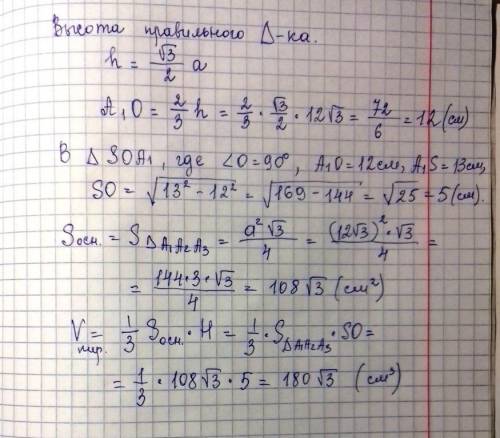 Высота правильного Δ-ка.
h = √3/2 a
A₁O = 2/3 h = 2/3 · √3/2 · 12√3 = 72/6 = 12 (см)
В Δ SOA₁, где ∠O = 90°, A₁O = 12см, A₁S = 13см,
SO = √(13² - 12²) = √(169 - 144) = √25 = 5 (см).
Sосн. = S Δ A₁A₂A₃ = a²√3/4 = (12√3)² · √3/4 =
= 144 · 3 · √3/4 = 108√3 (см²)
Vпир. = 1/3 Sосн. · H = 1/3 · SΔA₁A₂A₃ · SO =
= 1/3 · 108√3 · 5 = 180√3 (см³)